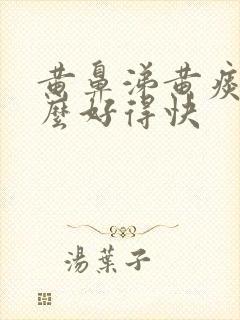 黄鼻涕黄痰
麼好得快
湯葉子